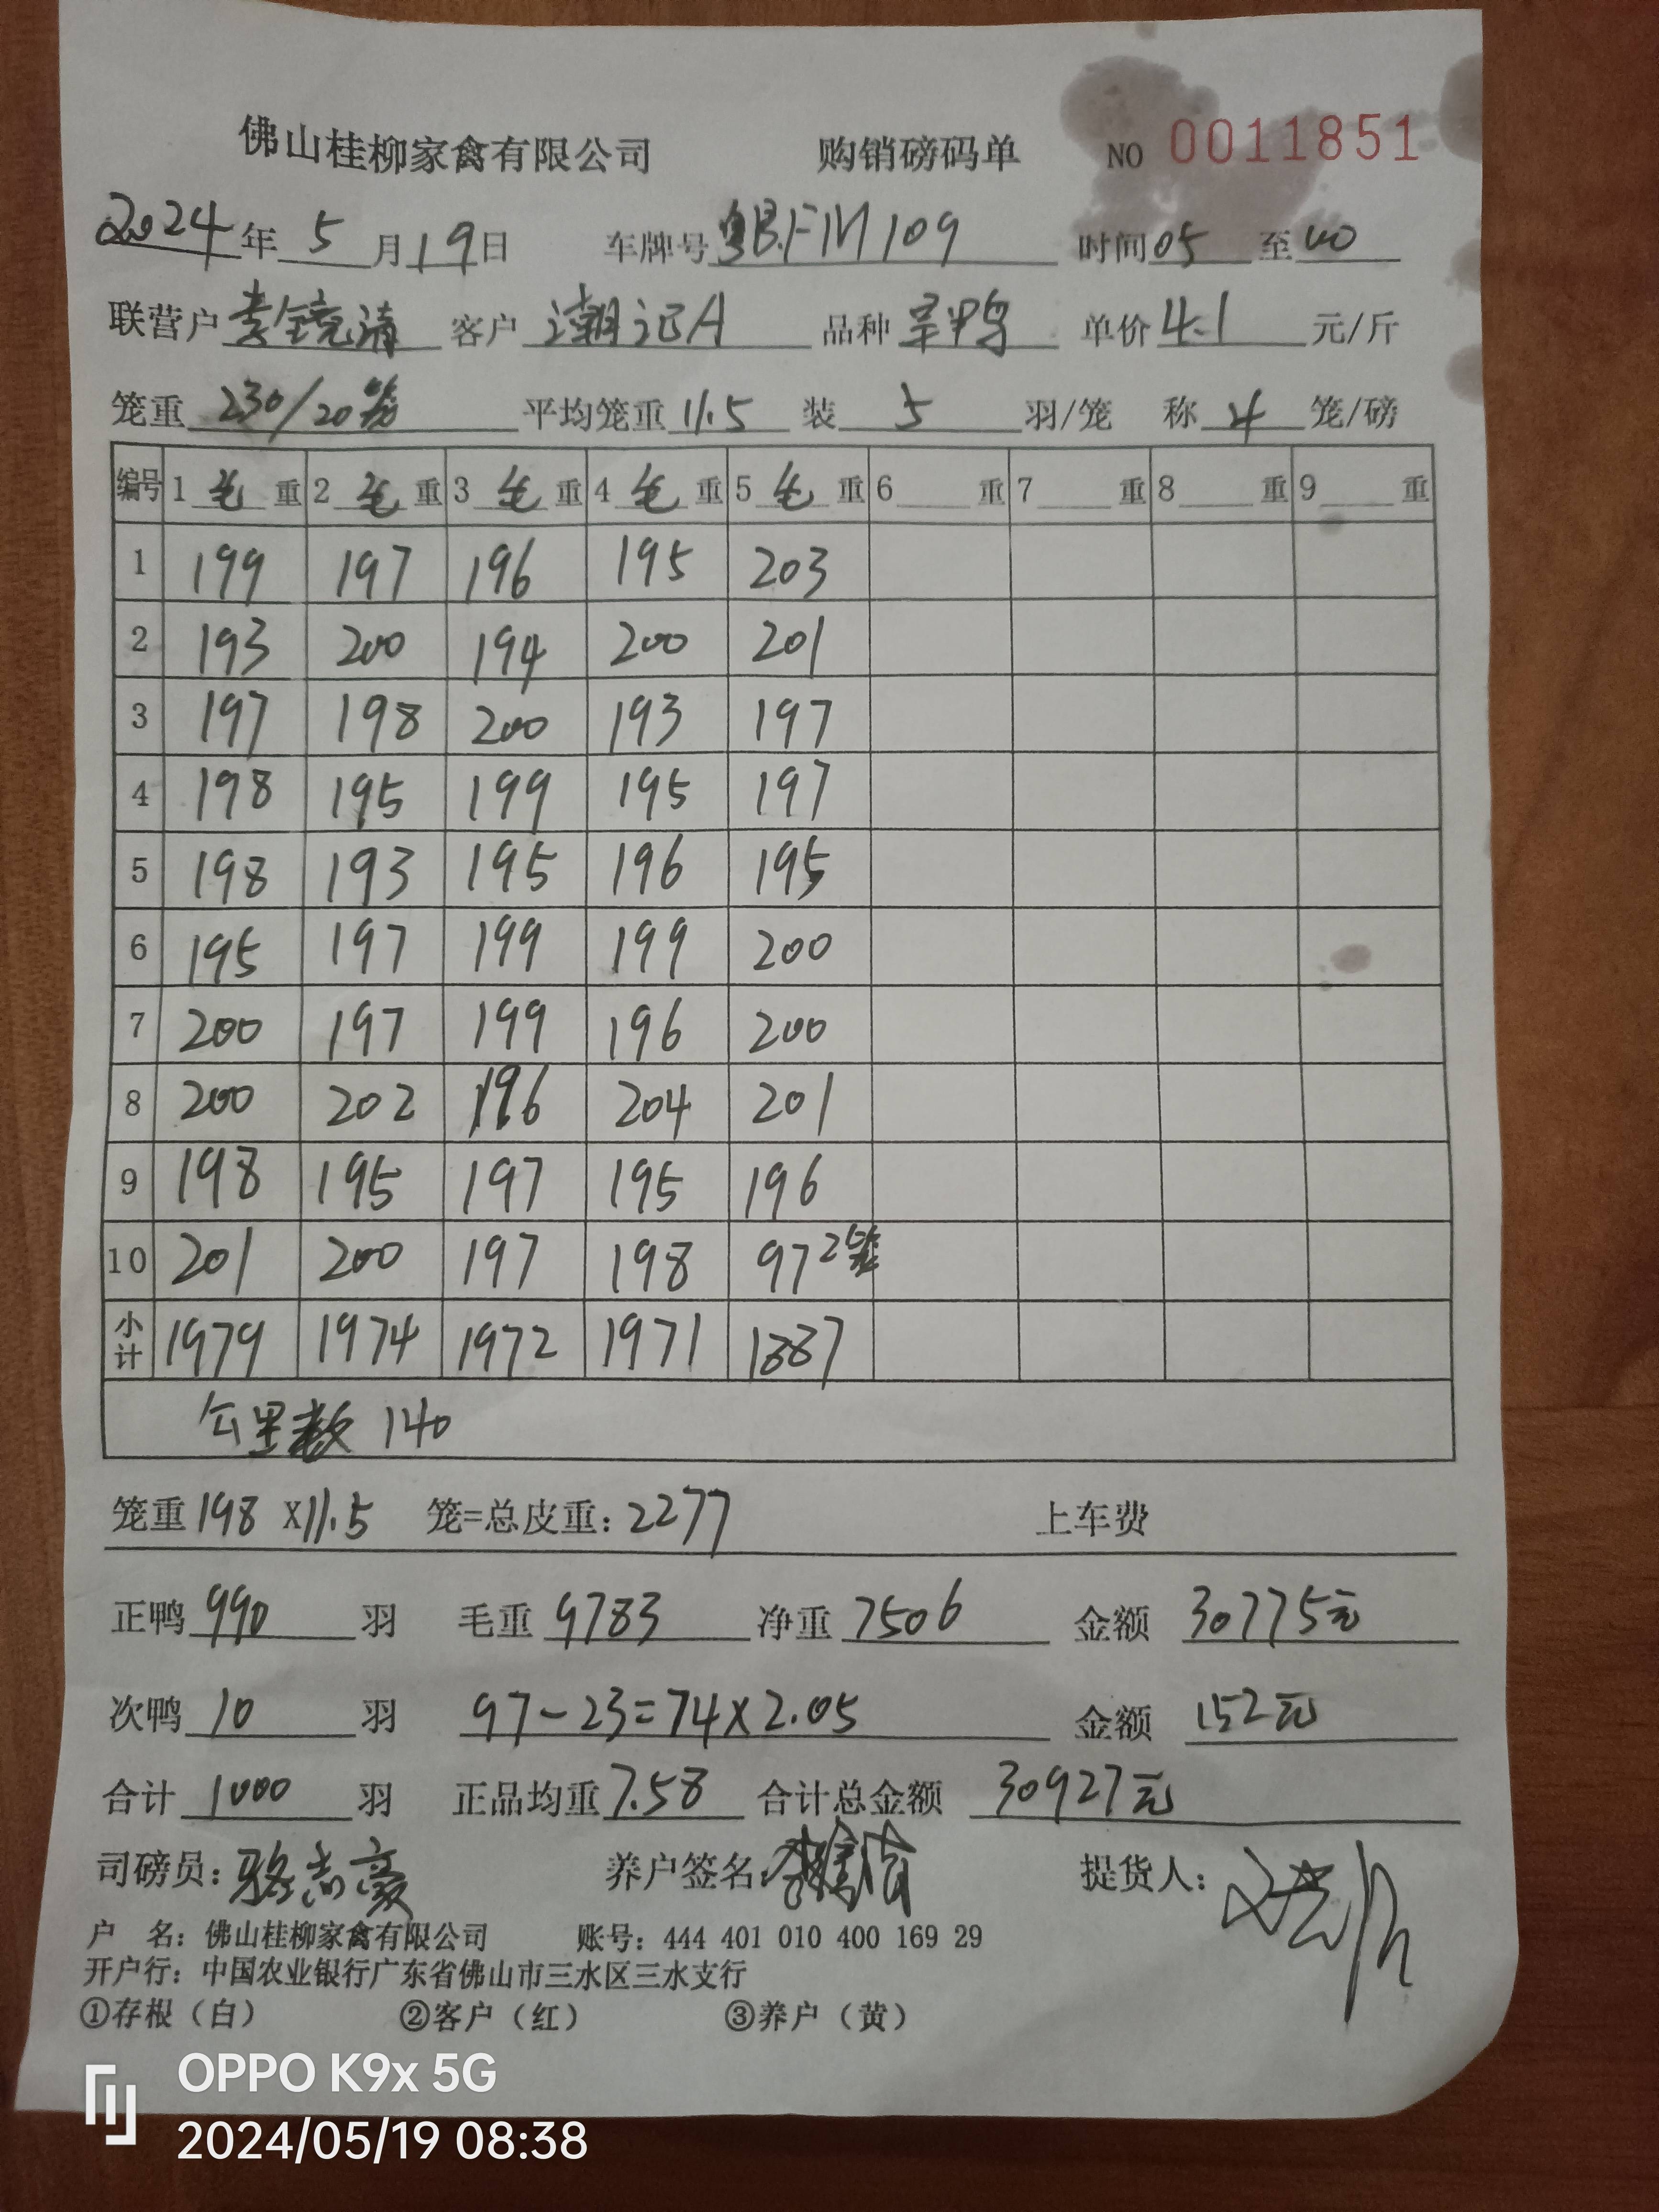 佛山桂柳家禽有限公司 购销磅码单 NO 0011851
2024年 5 月19日 车牌号粤B.FM109 时间05 至00
联营户李镜清 客户潮记A 品种 鸭 单价4.1 元/斤
笼重 230/20笼 平均笼重11.5 装 5 羽/笼 称 4 笼/磅
编号 1 毛 重 2 毛 重 3 毛 重 4 毛 重 5 毛 重 6 重 7 重 8 重 9 重
1 199 197 196 195 203
2 193 200 194 200 201
3 197 198 200 193 197
4 198 195 199 195 197
5 198 193 195 196 195
6 195 197 199 199 200
7 200 197 199 196 200
8 200 202 196 204 201
9 198 195 197 195 196
10 201 200 197 198 97 2笼
小计 1979 1974 1972 1971 1887
公里数 140
笼重 198 X11.5 笼=总皮重：2277 上车费
正鸭 990 羽 毛重 9783 净重 7506 金额 30775元
次鸭 10 羽 97-23=74×2.05 金额 152元
合计 1000 羽 正品均重7.58 合计总金额 30927元
司磅员：骆志豪 养户签名： 提货人：
户 名：佛山桂柳家禽有限公司 账号：444 401 010 400 169 29
开户行：中国农业银行广东省佛山市三水区三水支行
①存根（白） ②客户（红） ③养户（黄）
OPPO K9x 5G
2024/05/19 08:38